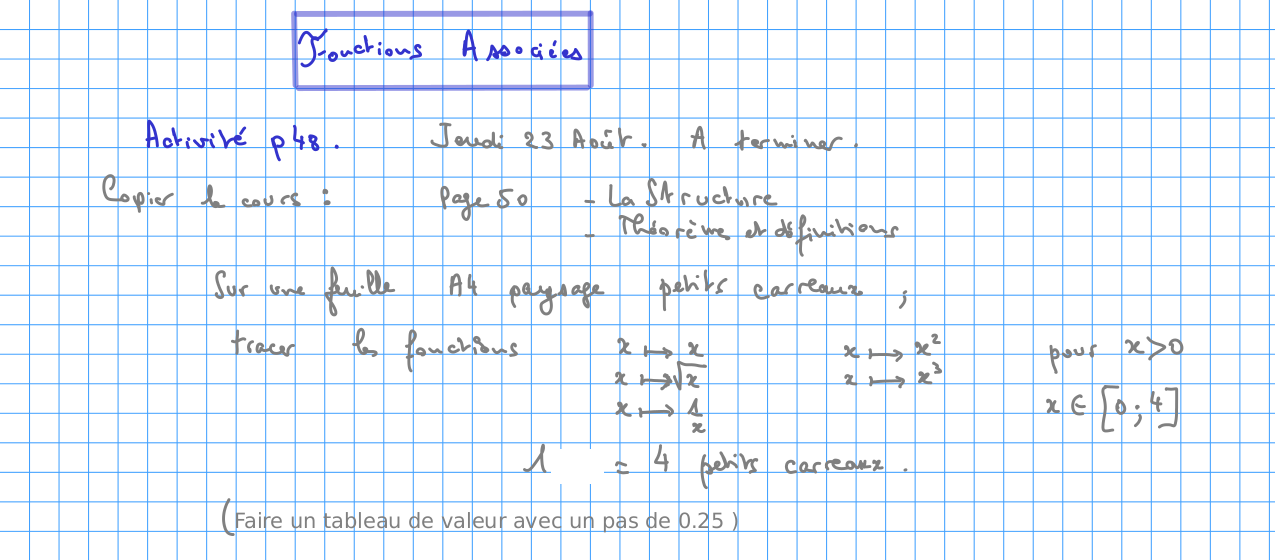 Fonctions Associées
Activité p 48. Jeudi 23 Août. A terminer.
Copier le cours : Page 50 - La Structure
- Théorème et définitions
Sur une feuille A4 paysage petits carreaux ;
tracer les fonctions x ↦ x x ↦ x² pour x>0
x ↦ √x x ↦ x³
x ↦ 1/x x ∈ [0 ; 4]
1 = 4 petits carreaux.
(Faire un tableau de valeur avec un pas de 0.25 )